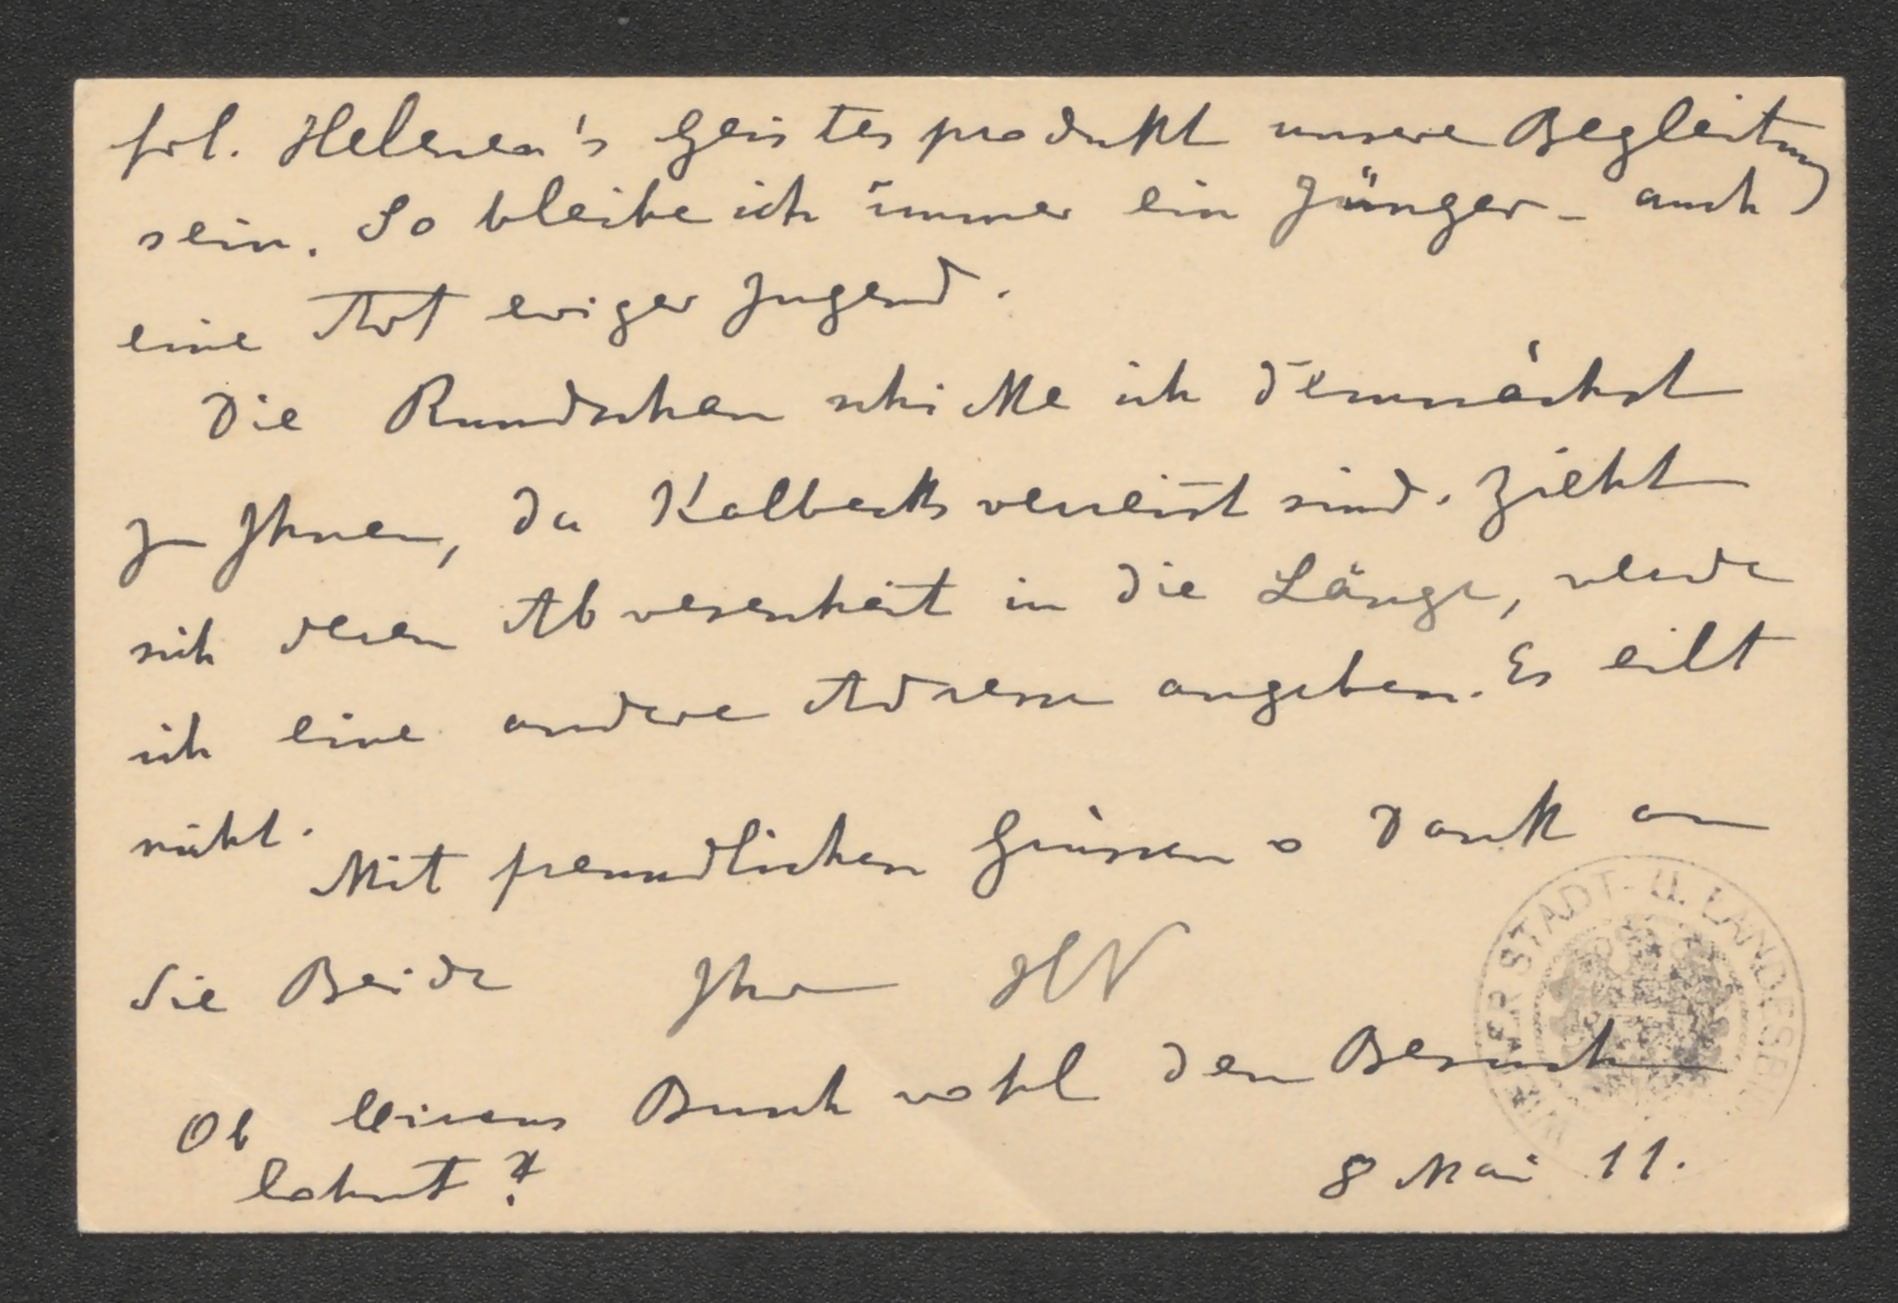 Frl. Helenen's Geistesprodukt unsere Begleitung
sein. So bleibe ich immer ein Jünger – auch
eine Art ewiger Jugend.
Die Rundschau schicke ich demnächst
zu Ihnen, da Kalbecks verreist sind. Zieht
sich deren Abwesenheit in die Länge, werde
ich eine andere Adresse angeben. Es eilt
nicht.
Mit freundlichen Grüssen u Dank an
Sie Beide Ihr HW
Ob Buch wohl den Besuch
lohnt?
8 Mai 11.
WIENER STADT- U. LANDESBI